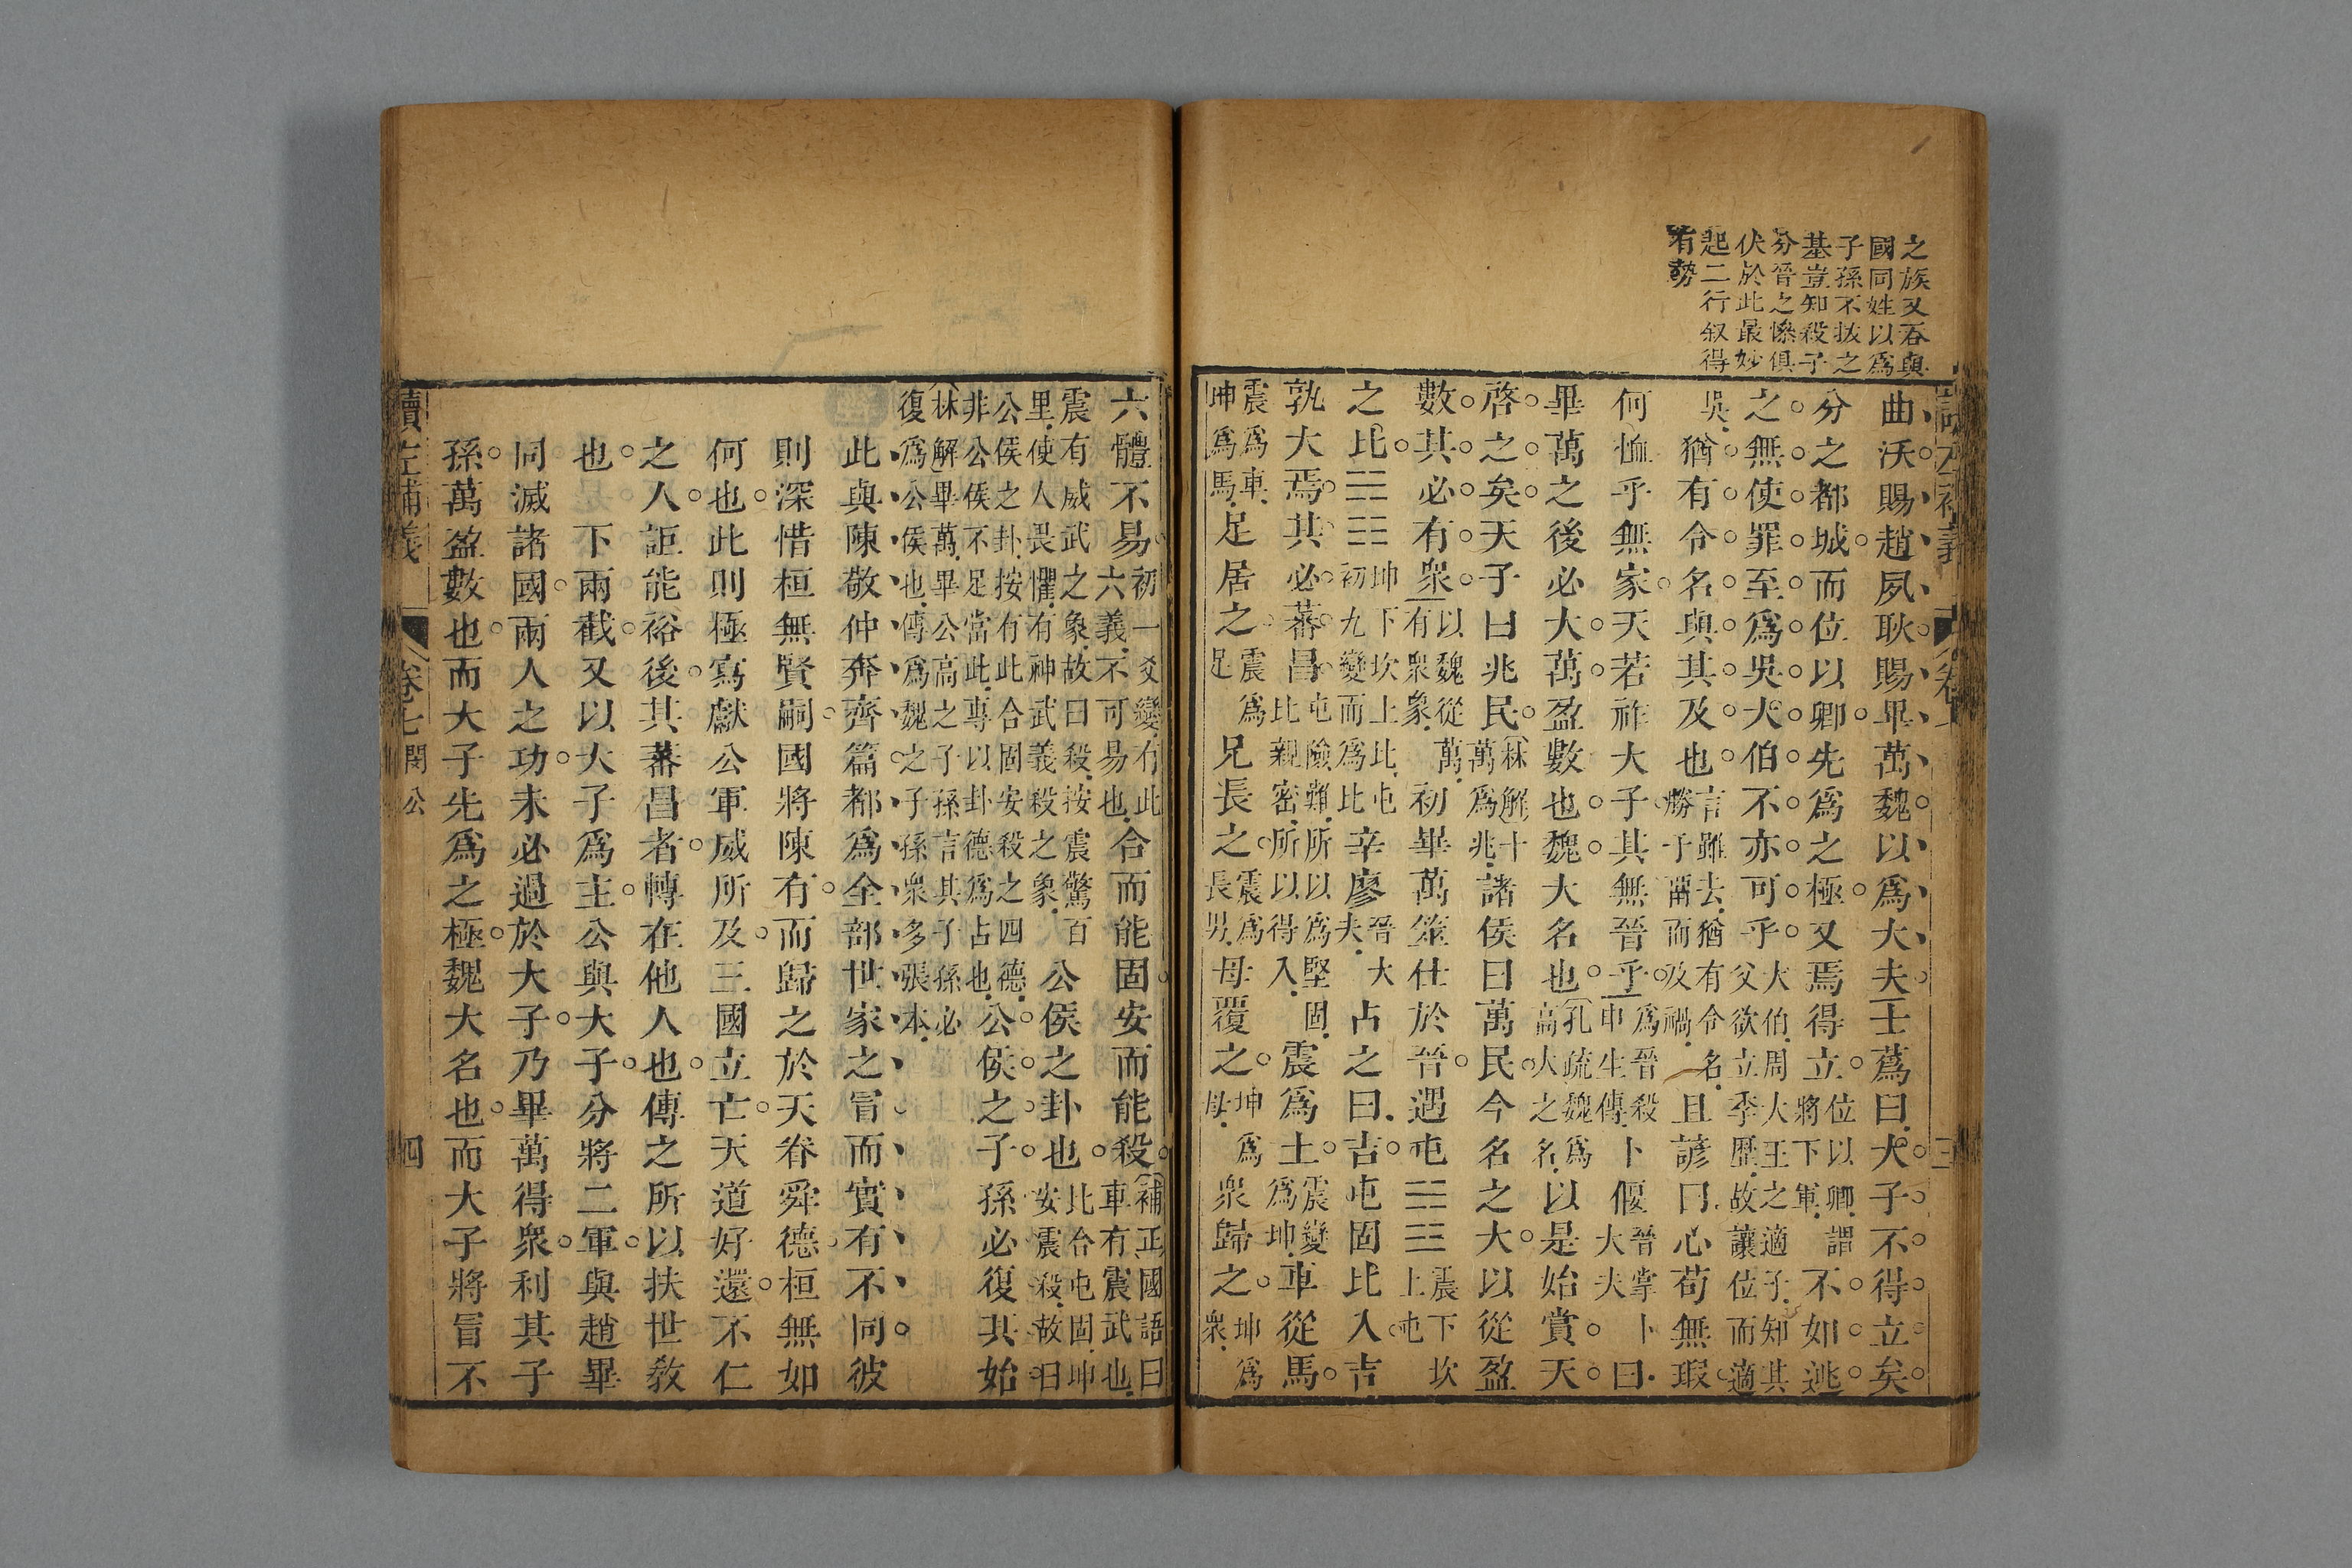 之族又吞與
國同姓以爲
子孫不拔之
基豈知殺子
分晉之慘俱
伏於此最妙
起二行叙得
有勢
曲沃賜趙夙耿賜畢萬魏以爲大夫士蔿曰大子不得立矣
分之都城而位以卿先爲之極又焉得立位以卿謂將下軍不如逃
之無使罪至爲吳大伯不亦可乎大伯周大王之適子知其父欲立季歷故讓位而適
吳猶有令名與其及也言雖去猶有令名勝于留而及禍且諺曰心苟無瑕
何恤乎無家天若祚大子其無晉乎爲晉殺申生傳卜偃晉掌卜大夫曰
畢萬之後必大萬盈數也魏大名也孔疏魏爲高大之名以是始賞天
啓之矣天子曰兆民林解十萬爲兆諸侯曰萬民今名之大以從盈
數其必有衆以魏從萬有衆象初畢萬筮仕於晉遇屯䷂震下坎上屯
之比䷇坤下坎上比屯初九變而爲比辛廖晉大夫占之曰吉屯固比入吉
孰大焉其必蕃昌屯險難所以爲堅固比親密所以得入震爲土震變爲坤車從馬
震爲車坤爲馬足居之震爲足兄長之震爲長男母覆之坤爲母衆歸之坤爲衆
六體不易初一爻變有此六義不可易也合而能固安而能殺補正國語曰車有震武也
震有威武之象故曰殺按震驚百里使人畏懼有神武義殺之象公侯之卦也比合屯固坤安震殺故曰
公侯之卦按有此合固安殺之四德非公侯不足當此專以卦德爲占也公侯之子孫必復其始
林解畢萬畢公高之子孫言其子孫必復爲公侯也傳爲魏之子孫衆多張本
此與陳敬仲奔齊篇都爲全部世家之冒而實有不同彼
則深惜桓無賢嗣國將陳有而歸之於天眷舜德桓無如
何也此則極寫獻公軍威所及三國立亡天道好還不仁
之人詎能裕後其蕃昌者轉在他人也傳之所以扶世敎
也下兩截又以大子爲主公與大子分將二軍與趙畢
同滅諸國兩人之功未必過於大子乃畢萬得衆利其子
孫萬盈數也而大子先爲之極魏大名也而大子將冒不
讀左補義
卷七 閔公
四